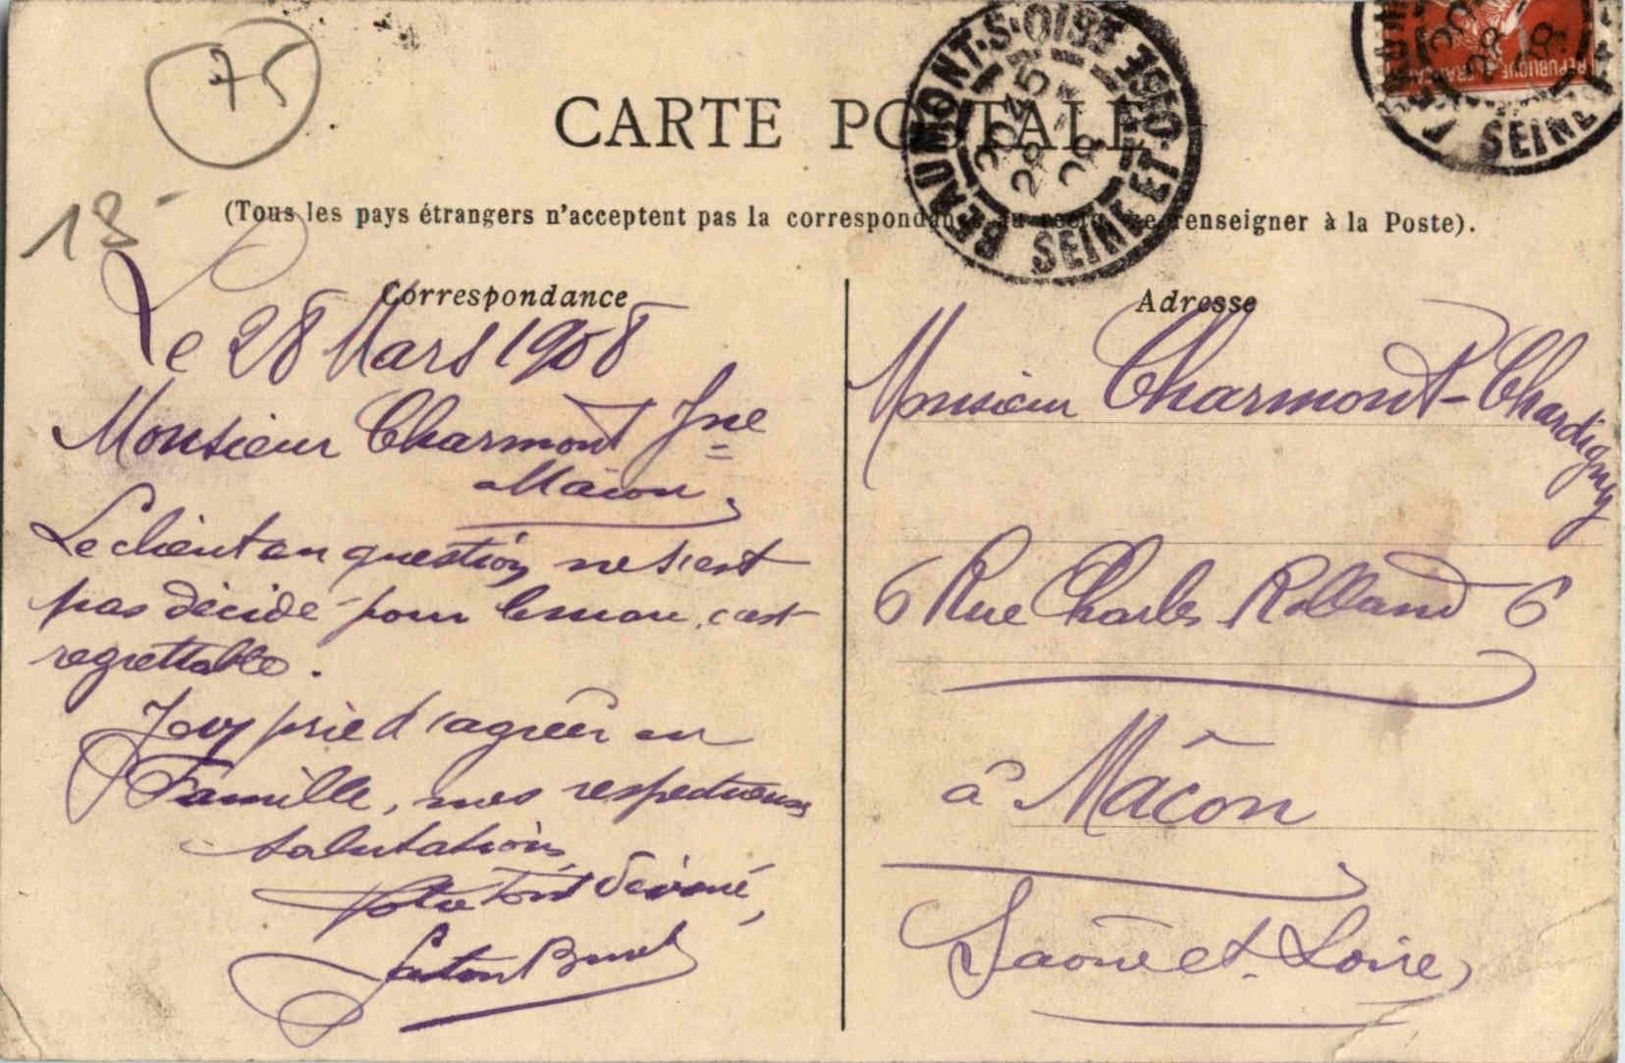 75
CARTE POSTALE
BEAUMONT-S-OISE
SEINE-ET-OISE
28
08
REPUBLIQUE FRANÇAISE
SEINE
13
(Tous les pays étrangers n'acceptent pas la correspondance au recto, se renseigner à la Poste).
Correspondance
Le 28 Mars 1908
Monsieur Charmont Jne
Mâcon,
Le client en question ne s'est
pas décidé pour c'est
regrettable.
Je vs prie d'agréer en
Famille, mes respectueuses
salutations,
Votre Tout dévoué,
Gaston
Adresse
Monsieur Charmont-Chardigny
6 Rue Charles Rolland 6
à Mâcon
Saône et Loire